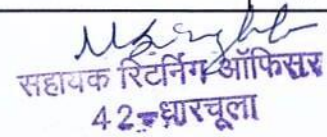 सहायक रिटर्निंग ऑफिसर
42-धारचूला